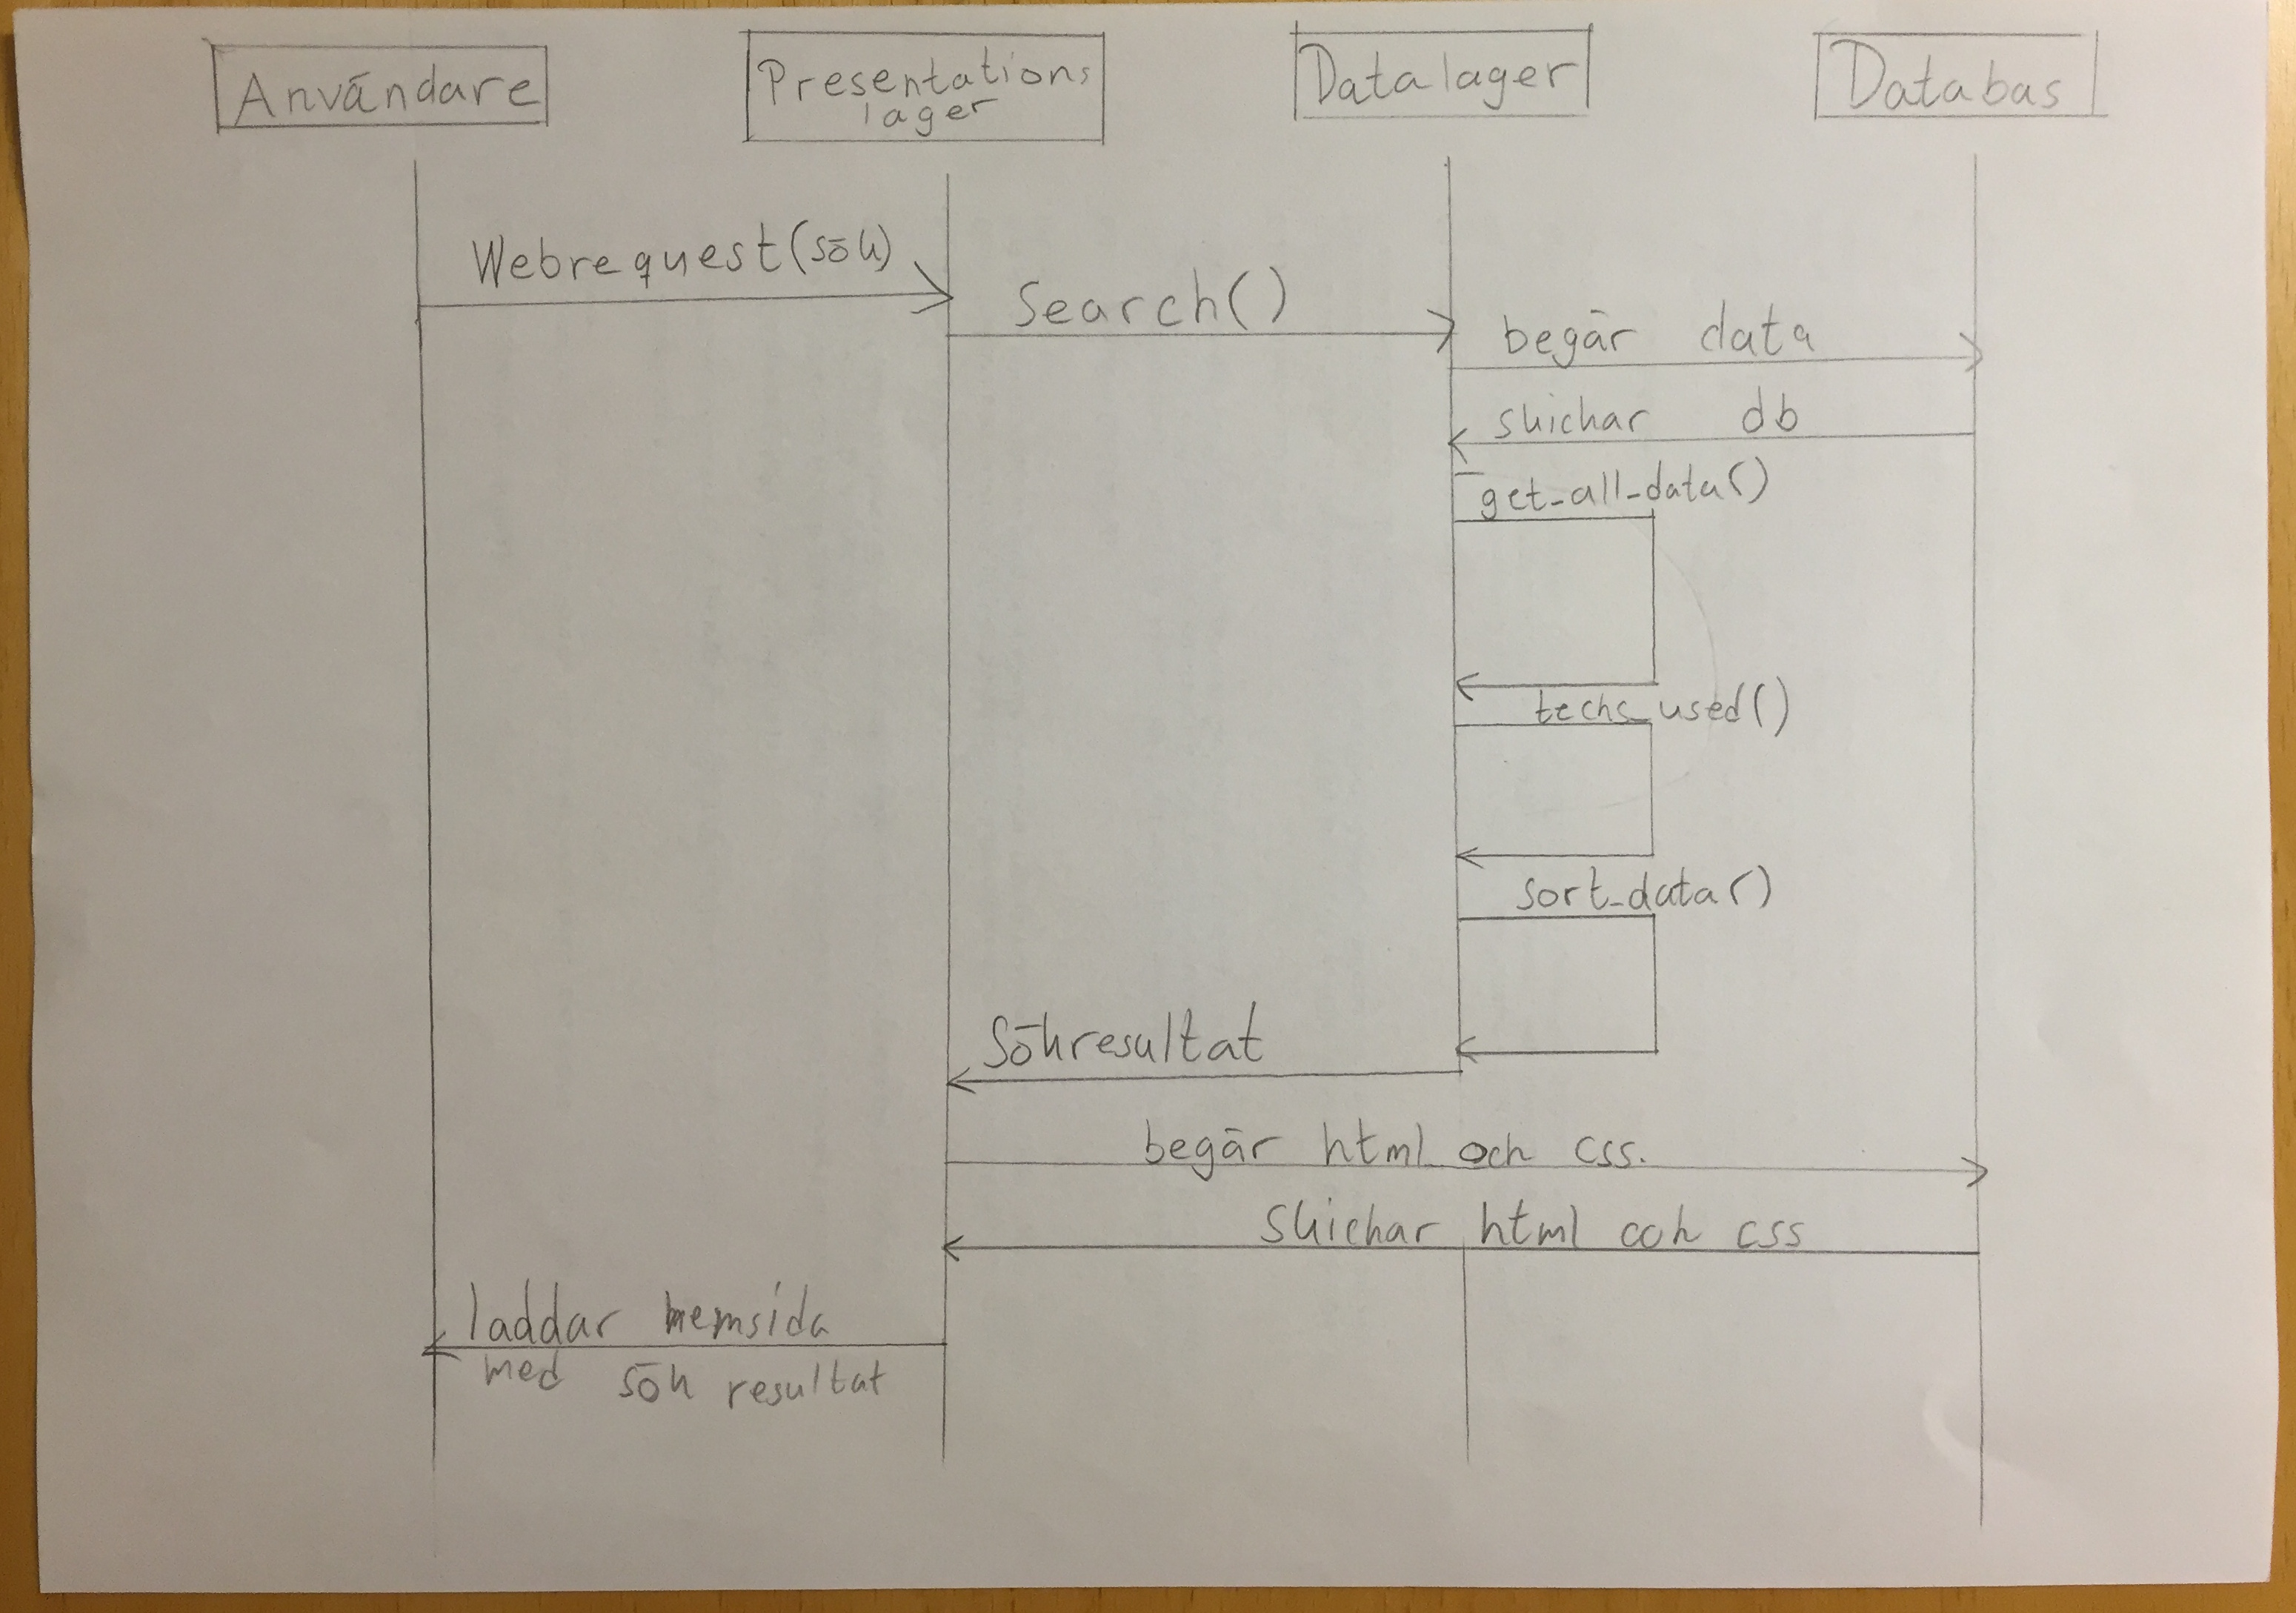 Användare
Presentations
lager
Datalager
Databas
Webrequest(sök)
Search()
begär data
skickar db
get_all_data()
techs_used()
sort_data()
Sökresultat
begär html och css.
Skickar html och css
laddar hemsida
med sök resultat